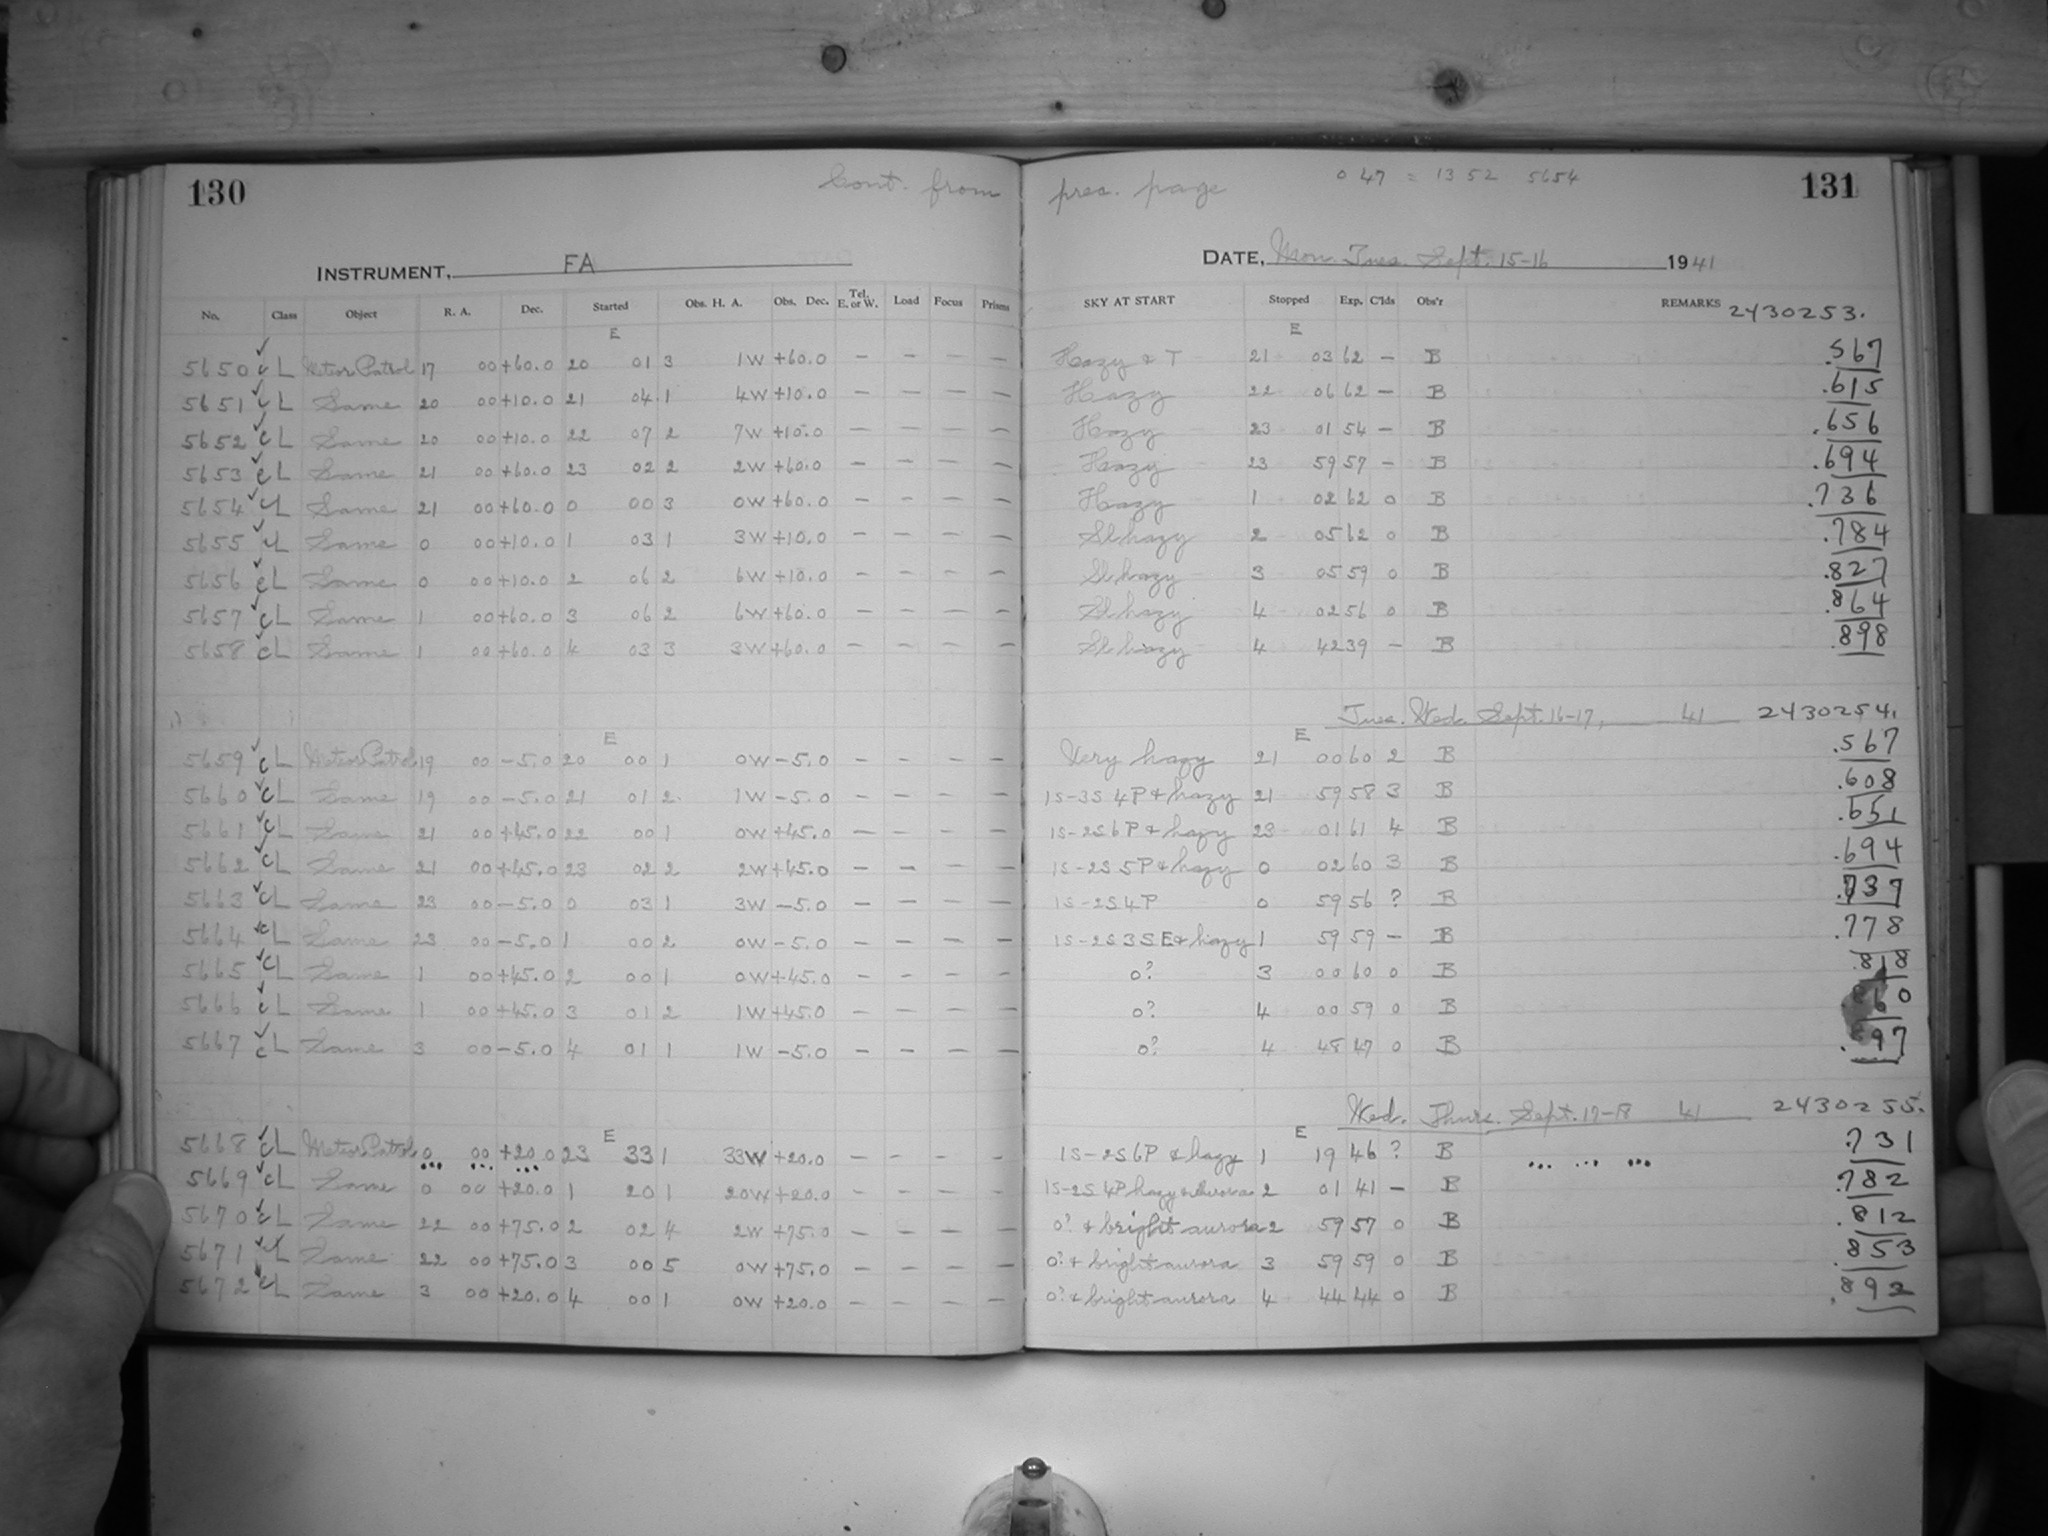 130 Cont. from prec. page 0 47 = 13 52 5654 131
INSTRUMENT, FA DATE, Mon. Tues. Sept. 15-16 1941
No. Class Object R. A. Dec. Started Obs. H. A. Obs. Dec. Tel. E. or W. Load Focus Prisms SKY AT START Stopped Exp. C'lds Obs'r REMARKS 2430253.
E E
5650 c L Meteor Patrol 17 00 +60.0 20 01 3 1W +60.0 – – – – Hazy & T 21 03 62 – B .567
5651 c L Same 20 00 +10.0 21 04 1 4W +10.0 – – – – Hazy 22 06 62 – B .615
5652 c L Same 20 00 +10.0 22 07 2 7W +10.0 – – – – Hazy 23 01 54 – B .656
5653 c L Same 21 00 +60.0 23 02 2 2W +60.0 – – – – Hazy 23 59 57 – B .694
5654 c L Same 21 00 +60.0 0 00 3 0W +60.0 – – – – Hazy 1 02 62 0 B .736
5655 c L Same 0 00 +10.0 1 03 1 3W +10.0 – – – – Sl hazy 2 05 62 0 B .784
5656 c L Same 0 00 +10.0 2 06 2 6W +10.0 – – – – Sl hazy 3 05 59 0 B .827
5657 c L Same 1 00 +60.0 3 06 2 6W +60.0 – – – – Sl hazy 4 02 56 0 B .864
5658 c L Same 1 00 +60.0 4 03 3 3W +60.0 – – – – Sl hazy 4 42 39 – B .898
Tues. Wed. Sept. 16-17, 41 2430254.
E E
5659 c L Meteor Patrol 19 00 -5.0 20 00 1 0W -5.0 – – – – Very hazy 21 00 60 2 B .567
5660 c L Same 19 00 -5.0 21 01 2 1W -5.0 – – – – 1S-3S 4P & hazy 21 59 58 3 B .608
5661 c L Same 21 00 +45.0 22 00 1 0W +45.0 – – – – 1S-2S 6P & hazy 23 01 61 4 B .651
5662 c L Same 21 00 +45.0 23 02 2 2W +45.0 – – – – 1S-2S 5P & hazy 0 02 60 3 B .694
5663 c L Same 23 00 -5.0 0 03 1 3W -5.0 – – – – 1S-2S 4P 0 59 56 ? B .737
5664 c L Same 23 00 -5.0 1 00 2 0W -5.0 – – – – 1S-2S 3SE & hazy 1 59 59 – B .778
5665 c L Same 1 00 +45.0 2 00 1 0W +45.0 – – – – 0? 3 00 60 0 B .818
5666 c L Same 1 00 +45.0 3 01 2 1W +45.0 – – – – 0? 4 00 59 0 B .860
5667 c L Same 3 00 -5.0 4 01 1 1W -5.0 – – – – 0? 4 48 47 0 B .897
Wed. Thurs. Sept. 17-18 41 2430255.
E E
5668 c L Meteor Patrol 0 00 +20.0 23 33 1 33W +20.0 – – – – 1S-2S 6P & hazy 1 19 46 ? B .731
5669 c L Same 0 00 +20.0 1 20 1 20W +20.0 – – – – 1S-2S 4P hazy & aurora 2 01 41 – B .782
5670 c L Same 22 00 +75.0 2 02 4 2W +75.0 – – – – 0? & bright aurora 2 59 57 0 B .812
5671 c L Same 22 00 +75.0 3 00 5 0W +75.0 – – – – 0? & bright aurora 3 59 59 0 B .853
5672 c L Same 3 00 +20.0 4 00 1 0W +20.0 – – – – 0? & bright aurora 4 44 44 0 B .892